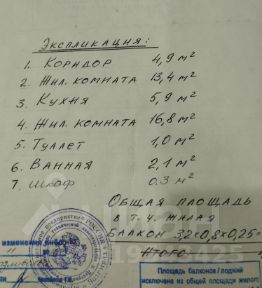 Экспликация:
1. Коридор 4,9 м²
2. Жил. комната 13,4 м²
3. Кухня 5,9 м²
4. Жил. комната 16,8 м²
5. Туалет 1,0 м²
6. Ванная 2,1 м²
7. шкаф 0.3 м²
Общая площадь
в т.ч. жилая
Балкон 3,2×0,8×0,25=
Итого
Площадь балконов / лоджий
исключена из общей площади